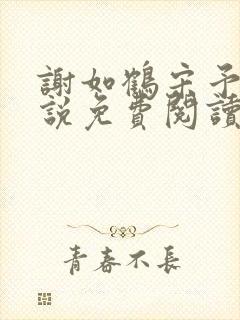 謝如鶴宋予
說免費閱讀
青春不長